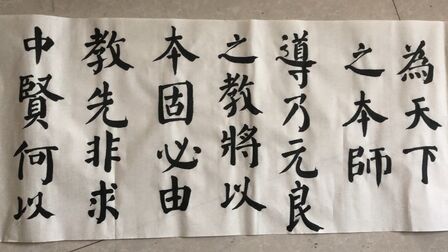 為天下
之本師
導乃元良
之教將以
本固必由
教先非求
中賢何以